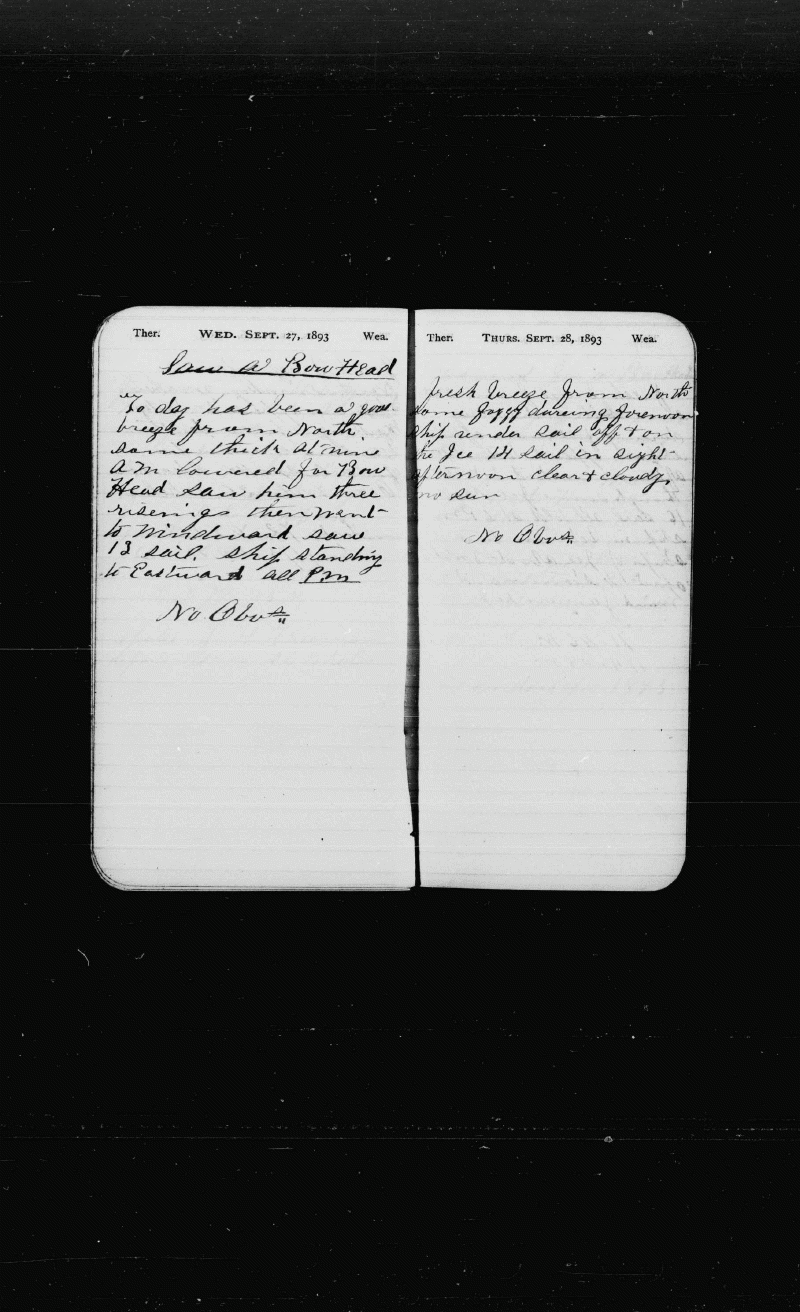 Ther. WED. SEPT. 27, 1893 Wea.
Saw a Bow Head
To day has been a good
breeze from North
some thick at nine
AM lowered for Bow
Head saw him three
riserings then went
to Windward saw
13 sail ship standing
to Eastward all PM
No Obos
Ther. THURS. SEPT. 28, 1893 Wea.
fresh breeze from North
some foggy dureing forenoon
ship under sail off + on
the Ice 14 sail in sight
afternoon clear + cloudy
no sun
No Obos